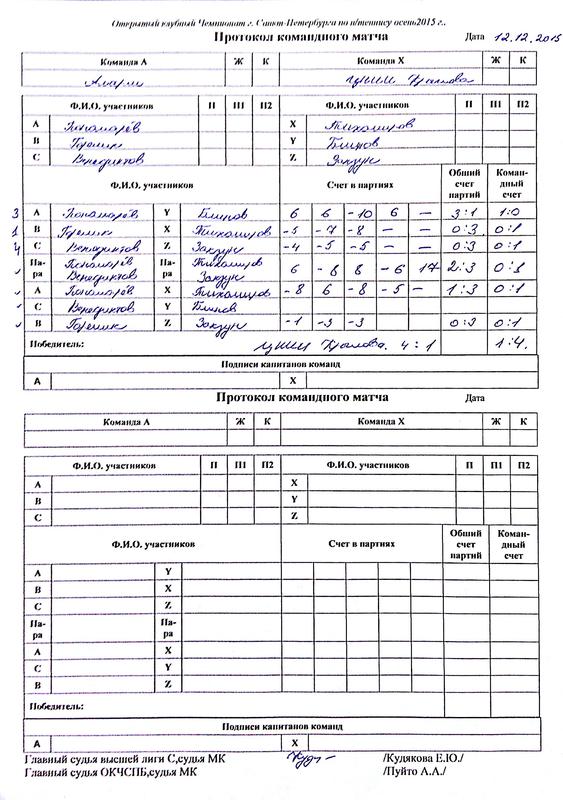 Открытый клубный Чемпионат г. Санкт-Петербурга по н/теннису осень2015 г..
Протокол командного матча Дата 12.12.2015
Команда А Ж К Команда Х Ж К
ЦНИИ Крылова
Ф.И.О. участников П П1 П2 Ф.И.О. участников П П1 П2
А Пономарёв X Тихомиров
В Горелик Y Блинов
С Венедиктов Z
Ф.И.О. участников Счет в партиях Общий счет партий Коман-дный счет
3 А Пономарёв Y Блинов 6 6 -10 6 – 3:1 1:0
1 В Горелик X Тихомиров -5 -7 -8 – – 0:3 0:1
4 С Венедиктов Z -4 -5 -5 – – 0:3 0:1
Па-ра Пономарёв Венедиктов Па-ра Тихомиров 6 -8 8 -6 17 2:3 0:1
А Пономарёв X Тихомиров -8 6 -8 -5 – 1:3 0:1
С Венедиктов Y Блинов
В Горелик Z -1 -3 -3 0:3 0:1
Победитель: ЦНИИ Крылова. 4:1 1:4.
Подписи капитанов команд
А X
Протокол командного матча Дата
Команда А Ж К Команда Х Ж К
Ф.И.О. участников П П1 П2 Ф.И.О. участников П П1 П2
А X
В Y
С Z
Ф.И.О. участников Счет в партиях Общий счет партий Коман-дный счет
А Y
В X
С Z
Па-ра Па-ра
А X
С Y
В Z
Победитель:
Подписи капитанов команд
А X
Главный судья высшей лиги С,судья МК /Кудякова Е.Ю./
Главный судья ОКЧСПБ,судья МК /Пуйто А.А./